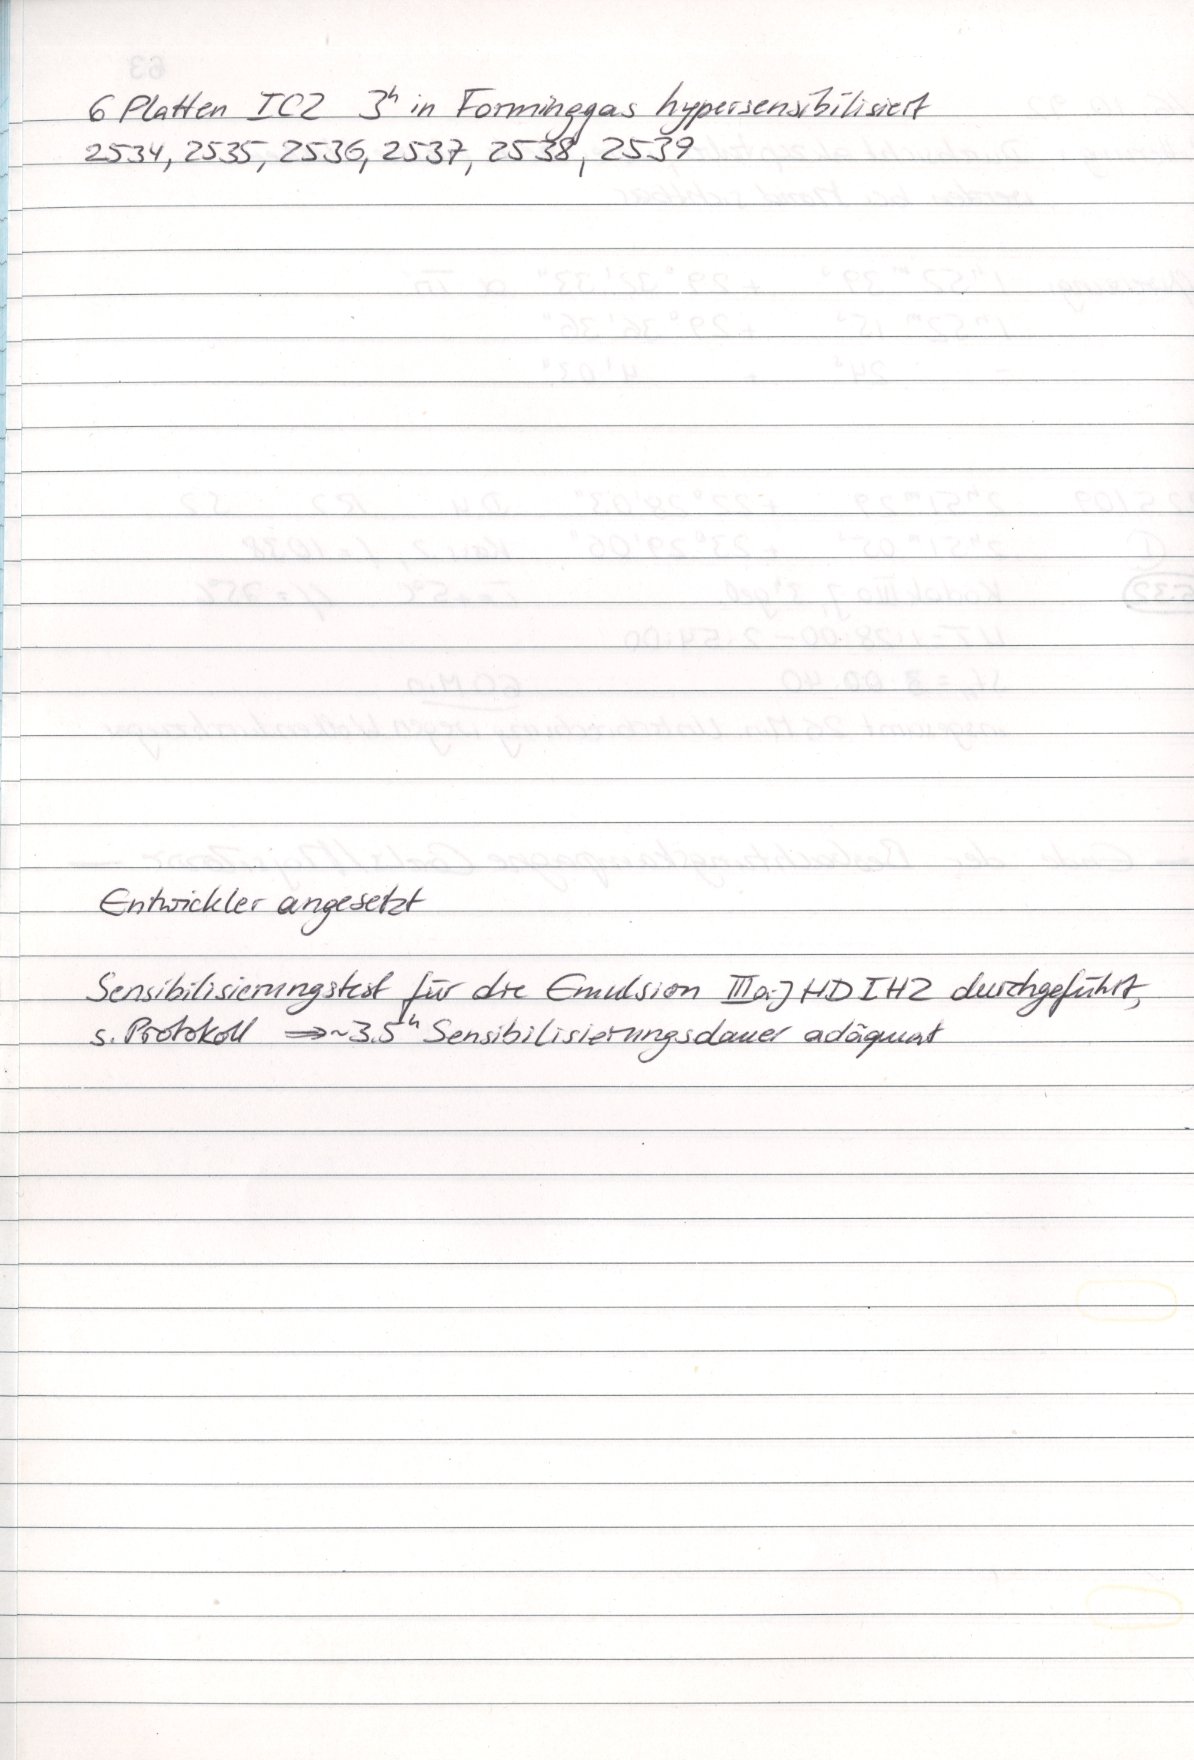 6 Platten IC2 3ʰ in Forminggas hypersensibilisiert
2534, 2535, 2536, 2537, 2538, 2539
Entwickler angesetzt
Sensibilisierungstest für die Emulsion IIIa-J HD IH2 durchgeführt,
s. Protokoll ⇒ ~3.5ʰ Sensibilisierungsdauer adäquat